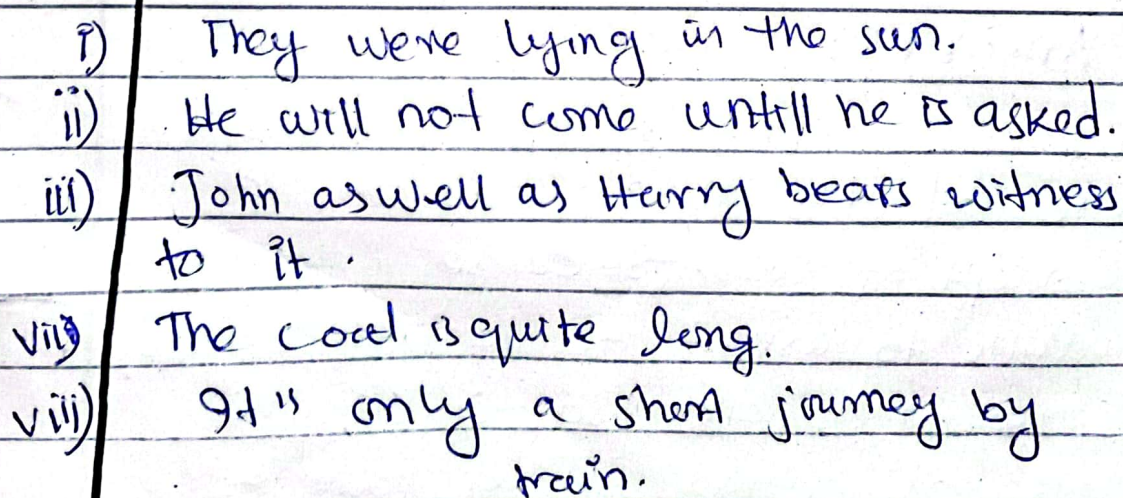 i) They were lying in the sun.
ii) He will not come untill he is asked.
iii) John as well as Harry bears witness
to it.
vii) The is quite long.
viii) It is only a short journey by
train.